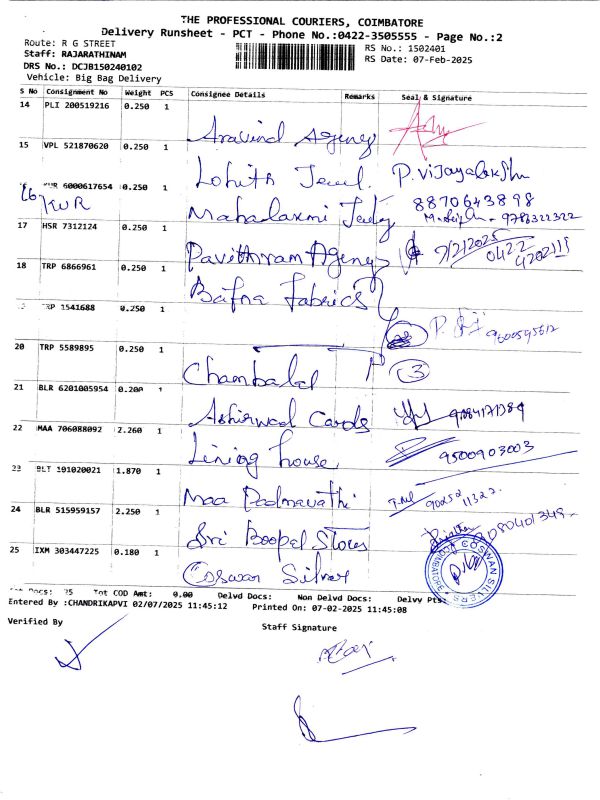 THE PROFESSIONAL COURIERS, COIMBATORE
Delivery Runsheet - PCT - Phone No.:0422-3505555 - Page No.:2
Route: R G STREET
RS No.: 1502401
Staff: RAJARATHINAM
RS Date: 07-Feb-2025
DRS No.: DCJB150240102
Vehicle: Big Bag Delivery
S No Consignment No Weight PCS Consignee Details Remarks Seal & Signature
14 PLI 200519216 0.250 1
Aravind Agency
15 VPL 521870620 0.250 1
Lohith Jewel. P. Vijayalakshmi
8870643898
6000617654 0.250 1
16 KWR
Mahalaxmi 9786322322
17 HSR 7312124 0.250 1
Pavithram Agency 7/2/2025
0422
4202111
18 TRP 6866961 0.250 1
Bafna Fabrics
TRP 1541688 0.250 1
9600595612
20 TRP 5589895 0.250 1
Chambalal 3
21 BLR 6201005954 0.200 1
Ashirwad Cards
22 MAA 706088092 2.260 1
Lining house 9500903003
23 BLT 191020021 1.870 1
Maa Padmavathi 90252 11322
24 BLR 515959157 2.250 1
Sri Boopal Stores 9080401349
25 IXM 303447225 0.180 1
Coswan Silver
COSWAN SILVERS
COIMBATORE
Docs: 25 Tot COD Amt: 0.00 Delvd Docs: Non Delvd Docs: Delvy Pts:
Entered By :CHANDRIKAPVI 02/07/2025 11:45:12 Printed On: 07-02-2025 11:45:08
Verified By
Staff Signature